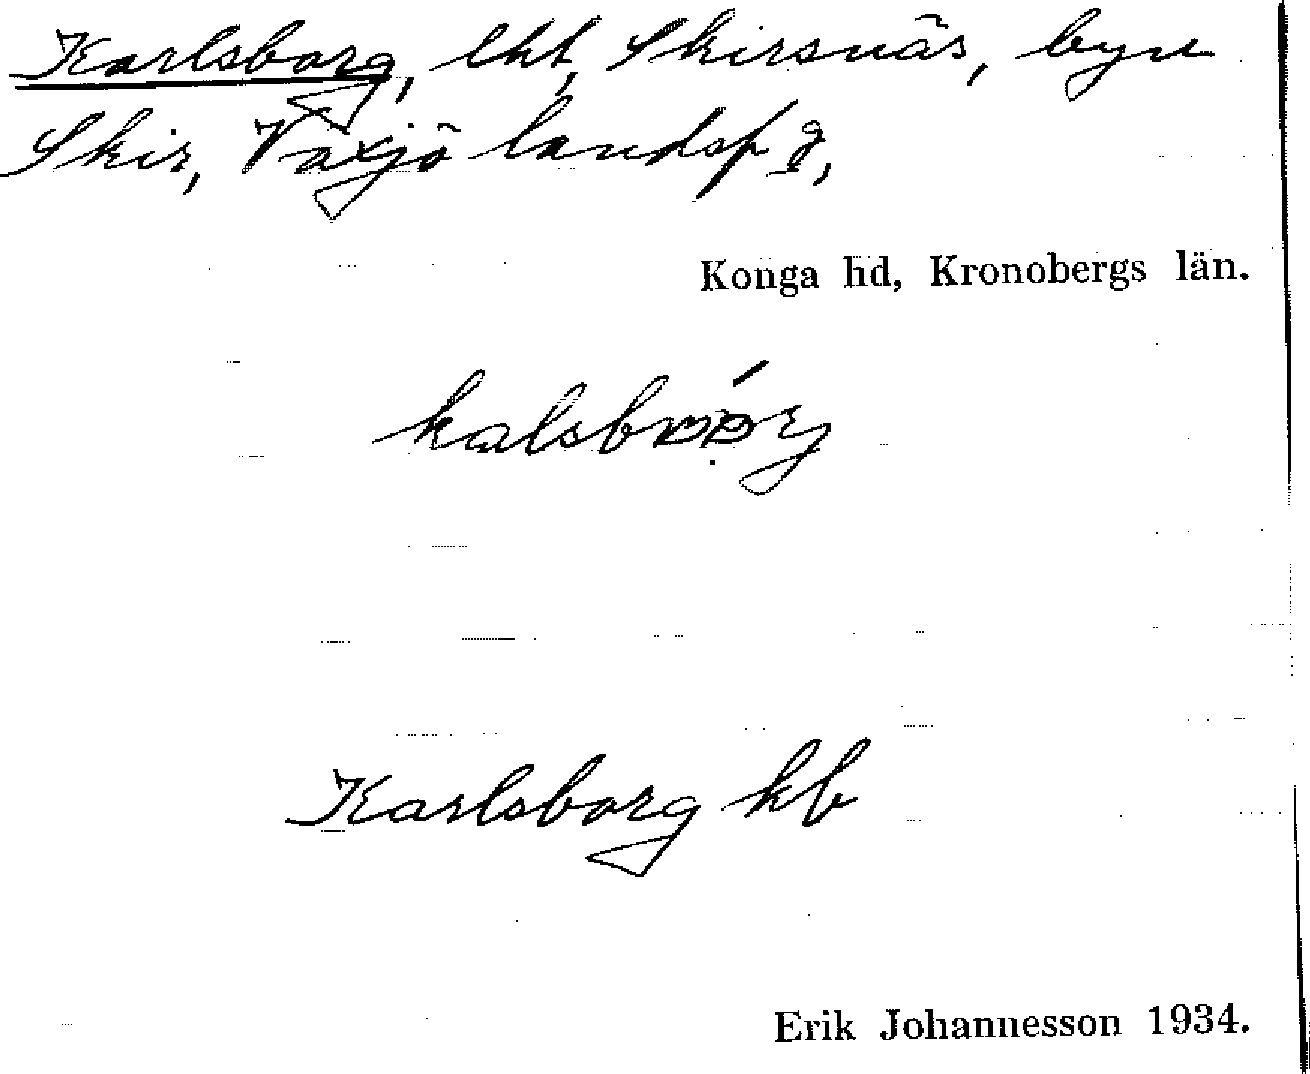 Karlsborg, lht, Skirsnäs, byn
Skir, Växjö landsf g,
Konga hd, Kronobergs län.
Karlsborg hb
Erik Johannesson 1934.